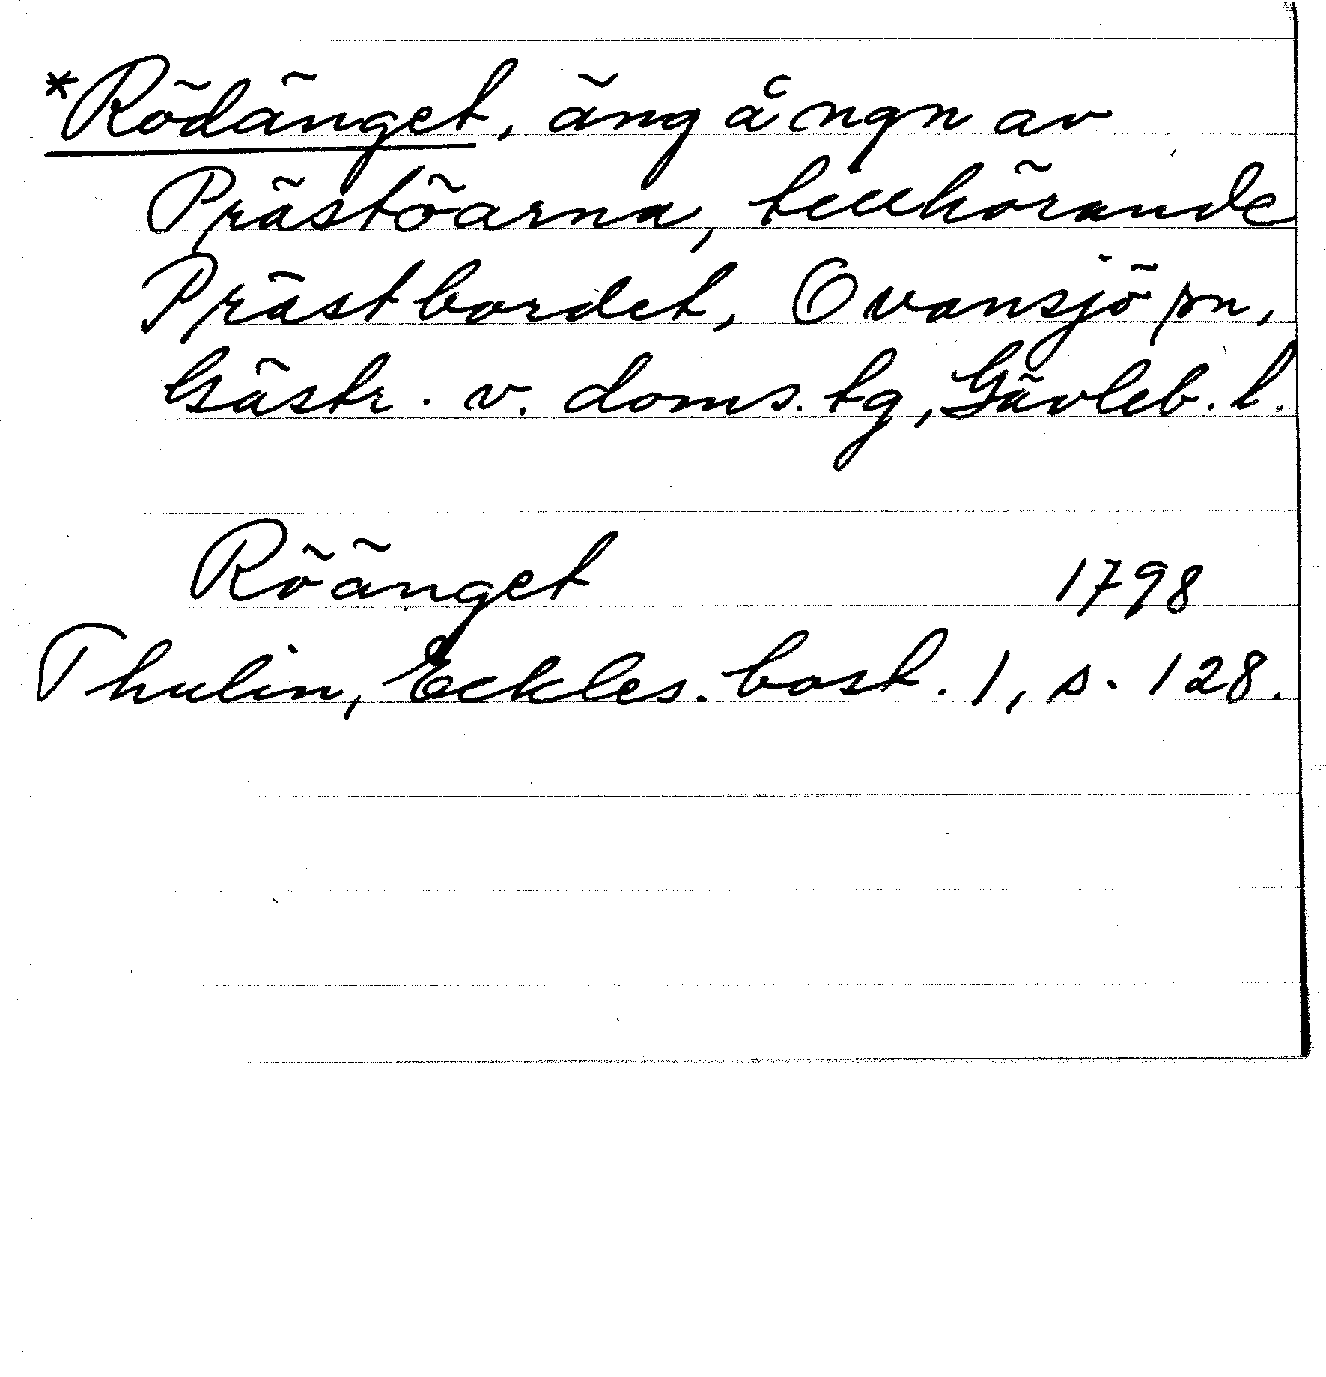 *Rödänget, äng å ngn av
Prästöarna, tillhörande
Prästbordet, Ovansjö sn,
Gästr. v. doms. tg, Gävleb. l.
Röänget 1798
Thulin, Eckles. bost. 1, s. 128.